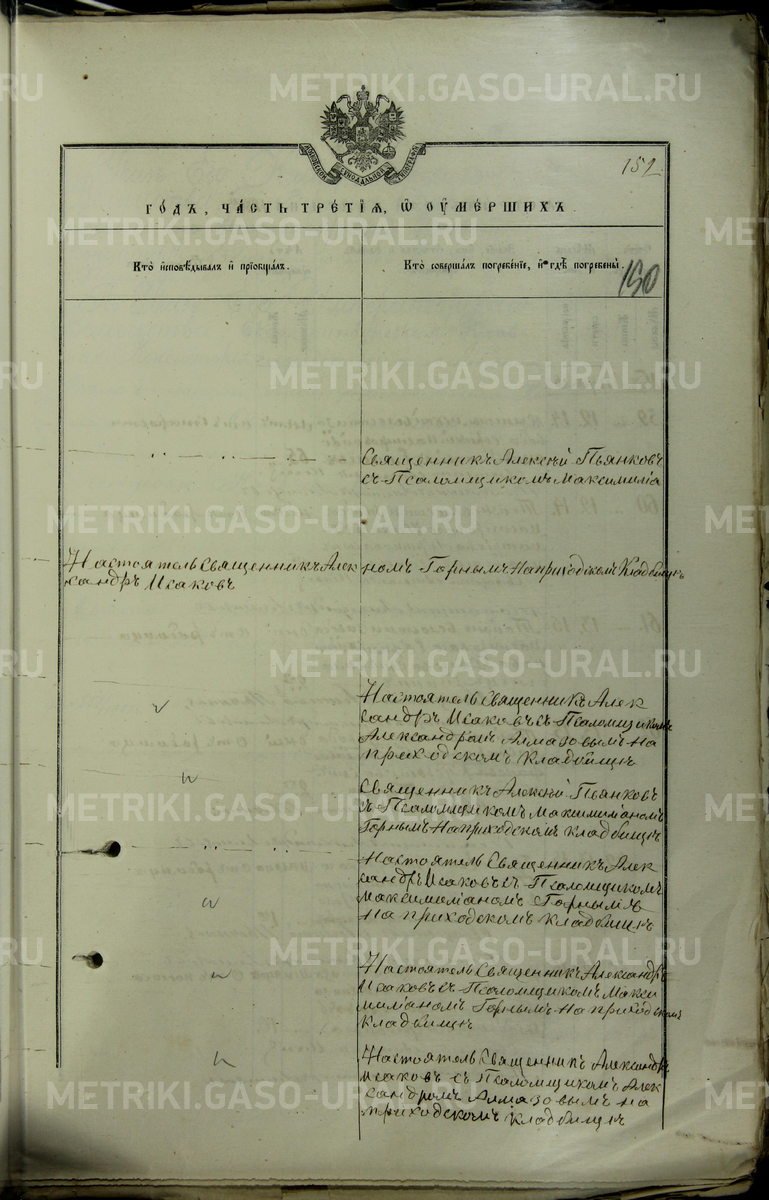 METRIKI.GASO-URAL.RU
152
МОСКОВСКОЙ СѴНОДАЛЬНОЙ ТИПОГРАФІИ
ГОДЪ, ЧАСТЬ ТРЕТІЯ, Ѡ ОУМЕРШИХЪ.
Кто исповѣдывалъ и пріобщалъ.
Кто совершалъ погребеніе, и гдѣ погребены.
150
Священникъ Алексѣй Пьянковъ
съ Псаломщикомъ Максимилiа
Настоятель Священникъ Алек
сандръ Исаковъ
номъ Горнымъ На приходскомъ Кладбищѣ
Настоятель Священникъ Алек
сандръ Исаковъ съ Псаломщикомъ
Александромъ Алмазовымъ на
приходскомъ кладбищѣ
Священникъ Алексѣй Пьянковъ
съ Псаломщикомъ Максимилiаномъ
Горнымъ На приходскомъ кладбищѣ
Настоятель Священникъ Алек
сандръ Исаковъ съ Псаломщикомъ
Максимилiаномъ Горнымъ
На приходскомъ кладбищѣ
Настоятель Священникъ Александръ
Исаковъ съ Псаломщикомъ Макси
милiаномъ Горнымъ На приходскомъ
Кладбищѣ
Настоятель Священникъ Александръ
Исаковъ съ Псаломщикомъ Алек
сандромъ Алмазовымъ на
приходскомъ Кладбищѣ